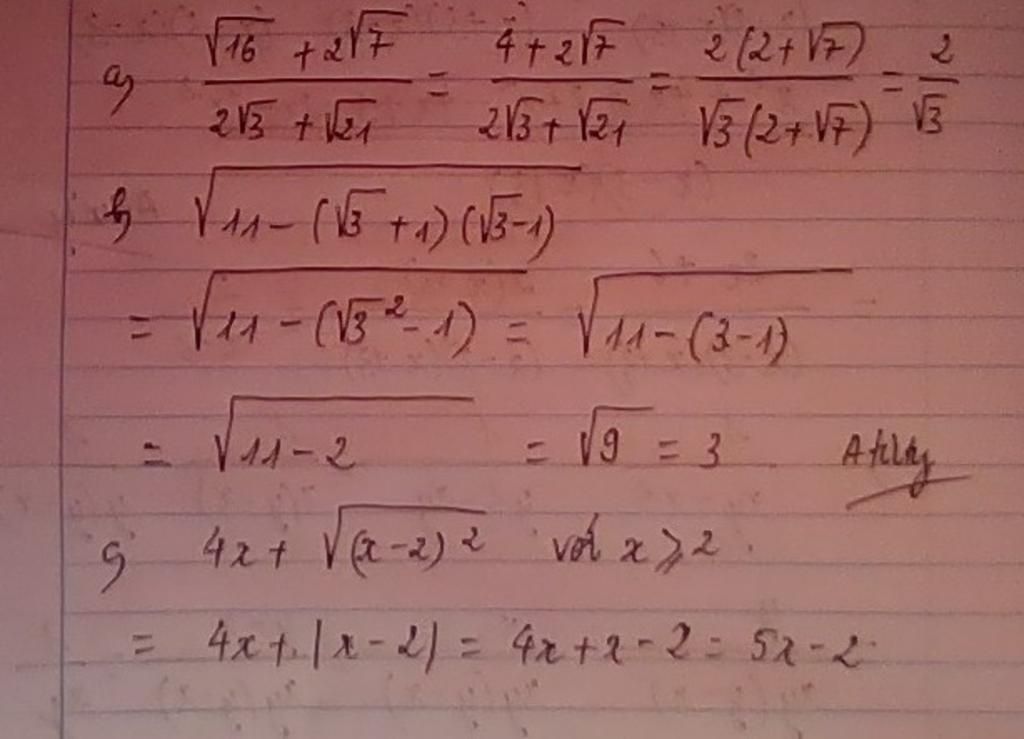 a) (√16 + 2√7)/(2√3 + √21) = (4 + 2√7)/(2√3 + √21) = 2(2+√7)/√3(2+√7) = 2/√3
b) √(11 - (√3 + 1)(√3 - 1))
= √(11 - (√3² - 1)) = √(11 - (3 - 1))
= √(11 - 2) = √9 = 3
c) 4x + √(x-2)² với x ≥ 2.
= 4x + |x - 2| = 4x + x - 2 = 5x - 2